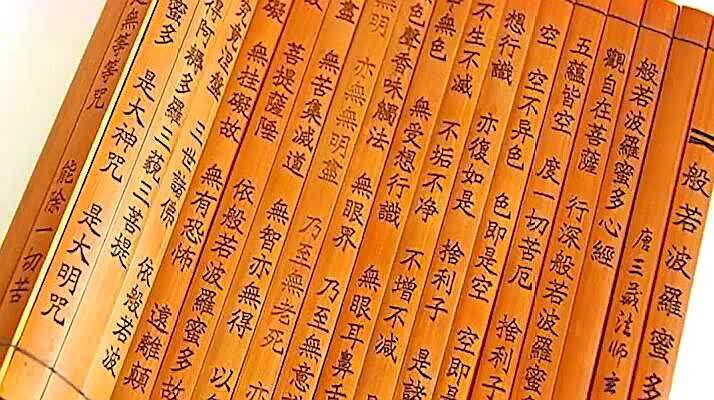 般若波羅蜜多
般若波羅蜜多心經 唐三藏法師玄
觀自在菩薩 行深般若波羅蜜多
五蘊皆空 度一切苦厄 捨利子
空 空不异色 色即是空 空即
想行識 亦復如是 捨利子 是諸
不生不滅 不垢不净 不增不減
無色 無受想行識 無眼耳鼻舌
色聲香味觸法 無眼界 乃至無意
無明 亦無無明盡 乃至無老死 亦
盡 無苦集滅道 無智亦無得 以
菩提薩埵 依般若波羅蜜多故
無挂礙故 無有恐怖 遠離顛
究竟涅槃 三世諸佛 依般若波
得阿耨多羅三藐三菩提
蜜多 是大神咒 是大明咒
是無等等咒 能除一切苦